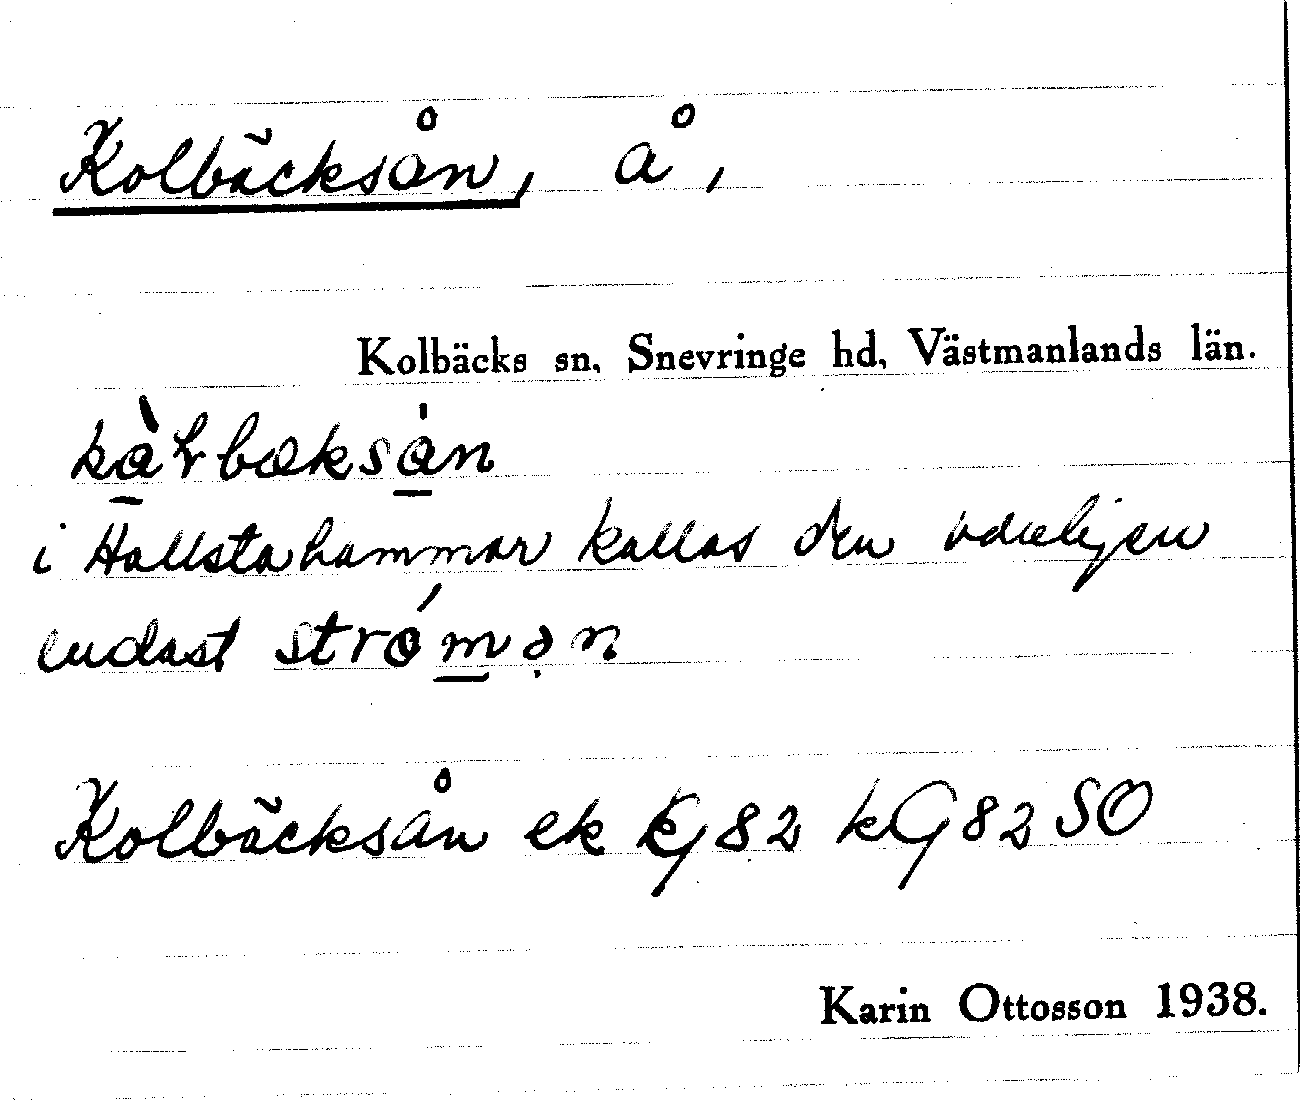 Kolbäcksån, å,
Kolbäcks sn, Snevringe hd, Västmanlands län.
i Hallstahammar kallas den vanligen
endast strömən
Kolbäcksån ek kG 82 kG 82 SO
Karin Ottosson 1938.